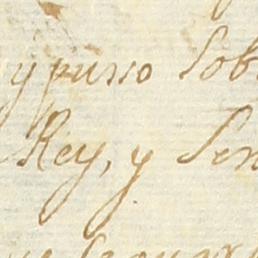 y puso Sob
Rey, y Sen